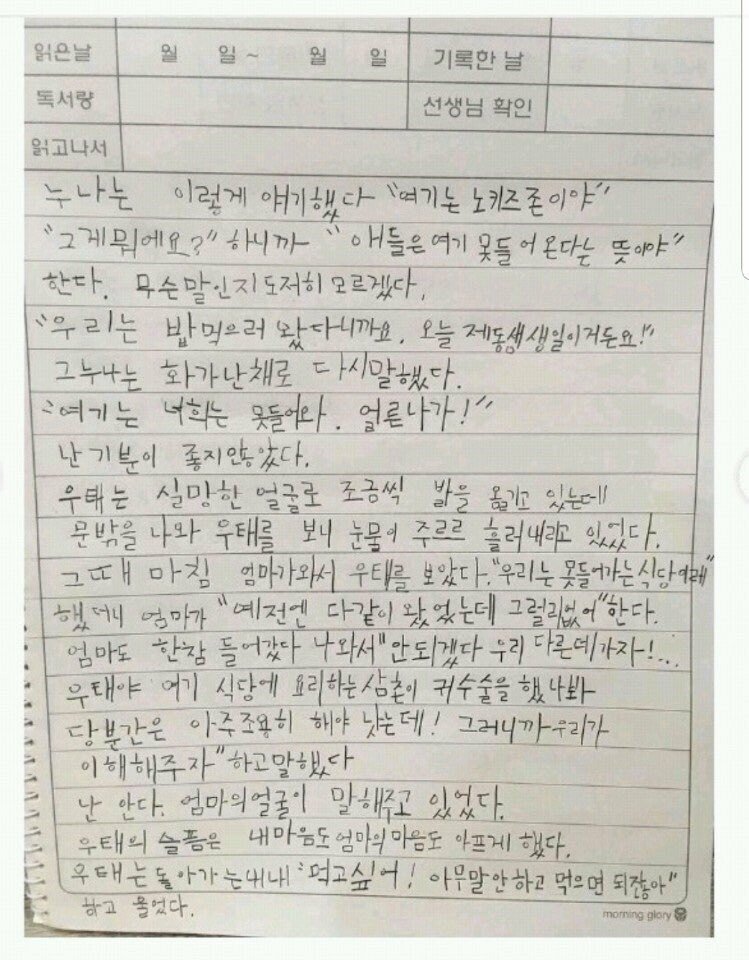 읽은날 월 일 ~ 월 일 기록한 날
독서량 선생님 확인
읽고나서
누나는 이렇게 얘기했다 "여기는 노키즈존이야"
"그게뭐에요?" 하니까 "애들은 여기 못들어 온다는 뜻이야"
한다. 무슨말인지도저히 모르겠다.
"우리는 밥먹으러 왔다니까요. 오늘 제동생생일이거든요!"
그누나는 화가난채로 다시말했다.
"여기는 너희는 못들어와. 얼른나가!"
난 기분이 좋지않았다.
우태는 실망한 얼굴로 조금씩 발을 옮기고 있는데
문밖을 나와 우태를 보니 눈물이 주르르 흘러내리고 있었다.
그때 마침 엄마가와서 우태를 보았다. "우리는 못들어가는식당이래"
했더니 엄마가 "예전엔 다같이 왔었는데 그럴리없어" 한다.
엄마도 한참 들어갔다 나와서 "안되겠다 우리 다른데가자!...
우태야 여기 식당에 요리하는삼촌이 귀수술을 했나봐
당분간은 아주조용히 해야 낫는데! 그러니까우리가
이해해주자" 하고말했다
난 안다. 엄마의얼굴이 말해주고 있었다.
우태의 슬픔은 내마음도 엄마의 마음도 아프게 했다.
우태는 돌아가는내내 "먹고싶어! 아무말안하고 먹으면 되잖아"
하고 울었다.
morning glory